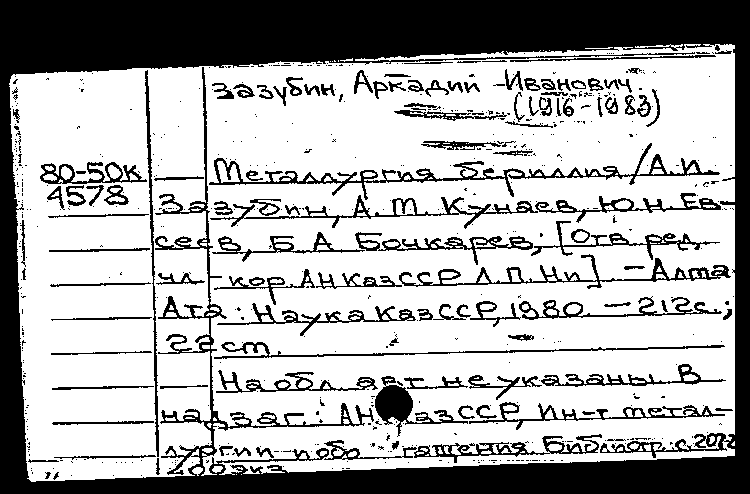 Зазубин, Аркадий Иванович
(1916-1983)
80-50к
4578
Металлургия бериллия / А.И.
Зазубин, А.М. Кунаев, Ю.Н. Ев-
сеев, Б А Бочкарев; [Отв ред.
чл.-кор. АН КазССР Л.П. Ни]. - Алма
Ата: Наука КазССР, 1980. - 212с.;
22см.
На обл. авт. не указаны. В
надзаг.: АН КазССР, Ин-т метал-
лургии и обогащения. Библиогр: с.
400экз